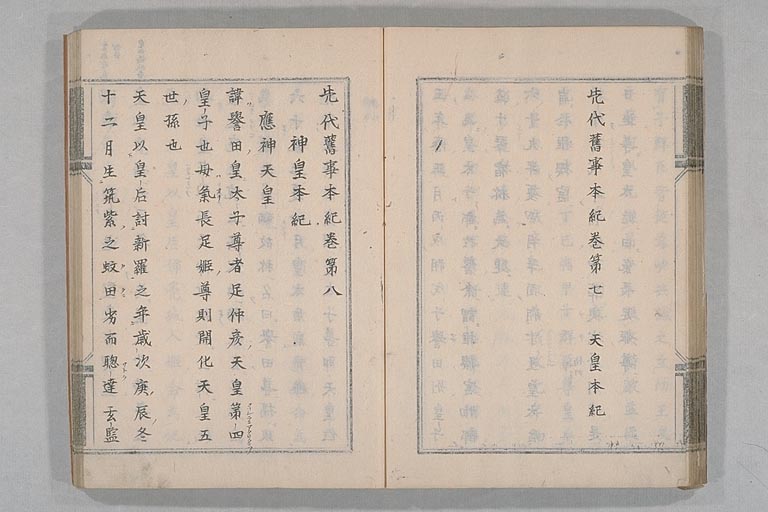 先代舊事本紀巻第七 天皇本紀
先代舊事本紀巻第八
神皇本紀
應神天皇
諱譽田皇太子尊者足仲彦天皇第四
皇子也母氣長足姫尊則開化天皇五
世孫也
天皇以皇后討新羅之年歳次庚辰冬
十二月生筑紫之蚊田㓜而聰達玄監